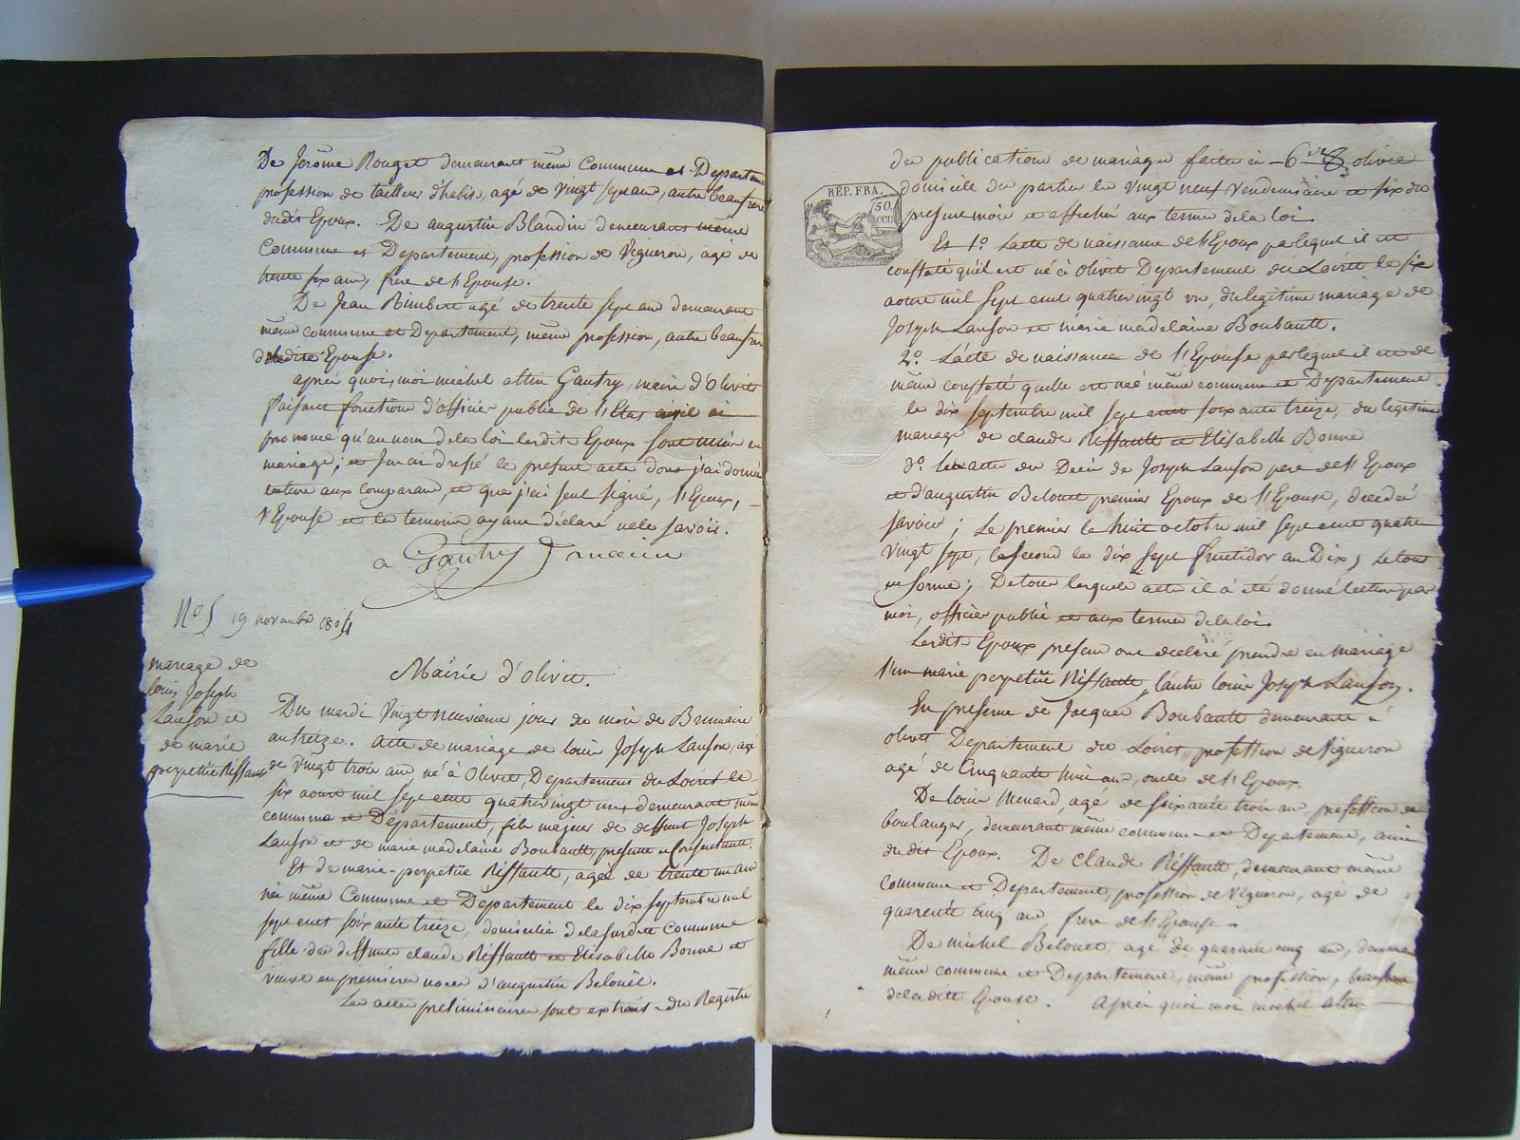 De Jerôme Rouget demeurant même Commune et Departem
profession de tailleur d'habit, agé de Vingt sept ans, autre beaufrere
dudit Epoux. De augustin Blandin demeurant même
Commune et Departement, profession de Vigneron, agé de
trente six ans, frere de l'Epouse.
De Jean Rimbert agé de trente sept ans demeurant
même commune et Departement, même profession, autre beaufrere
de ladite Epouse.
après quoi, moi michel Gautry, maire d'Olivet
faisant fonction d'officier public de l'Etat civil ai
prononcé qu'au nom de la loi lesdits Epoux sont unis en
mariage; et J'en ai dressé le present acte dont j'ai donné
lecture aux comparans, et que j'ai seul signé, l'Epoux,
l'Epouse et les temoins ayant déclaré ne le savoir.
Gautry maire
No 5 19 novembre 1804
mariage de
louis Joseph
Lanson et
de marie
perpetüe Riffault
Mairie d'olivet.
Du mardi Vingt neuvieme jour du mois de Brumaire
an treize. Acte de mariage de louis Joseph Lanson, agé
de Vingt trois ans, né à Olivet, Departement du Loiret le
six aoust mil sept cent quatrevingt un, demeurant même
commune et Departement, fils majeur de deffunt Joseph
Lanson et de marie madelaine Boubault, presente et Consentante.
Et de marie-perpetüe Riffault, agée de trente un ans
née même Commune et Departement le dix septembre mil
sept cent soixante treize, domiciliée de la susdite Commune
fille des deffunts claude Riffault et Elisabelle Bonne et
veuve en premieres noces d'augustin Belouët.
Les actes preliminaires sont extraits du Registre
des publications de mariages faites à olivet
REP. FRA.
50.
CEN.
domicile des parties les Vingt neuf Vendemiaire et six du
present mois et affiché aux termes de la loi.
Et 1o. Lacte de naissance de l'Epoux par lequel il est
constaté qu'il est né à Olivet Departement du Loiret, le six
aoust mil sept cent quatrevingt un, du legitime mariage de
Joseph Lanson et marie madelaine Boubault.
2o. L'acte de naissance de l'Epouse par lequel il est de
même constaté quelle est née même commune et Departement
le dix septembre mil sept cent soixante treize, du legitime
mariage de claude Riffault et Elisabelle Bonne
3o. les actes du Decès de Joseph Lanson pere de l'Epoux
et d'augustin Belouet premier Epoux de l'Epouse, decedés
savoir; Le premier le huit octobre mil sept cent quatre
Vingt sept, le second le dix sept fructidor an Dix, Le tout
en forme; De tous lesquels actes il a été donné lecture par
moi, officier public et aux termes de la loi.
Lesdits Epoux presens ont declaré prendre en mariage
l'un marie perpetüe Riffault, l'autre louis Joseph Lanson.
En presence de Jacques Boubault demeurant à
olivet Departement du Loiret, profession de Vigneron
agé de Cinquante huit ans, oncle de l'Epoux.
De louis Menard, agé de soixante trois ans profession de
boulanger, demeurant même commune et Departement, ami
dudit Epoux. De Claude Riffault, demeurant même
Commune et Departement, profession de Vigneron, agé de
quarente cinq ans frere de l'Epouse.
De michel Belouet, agé de quarente cinq ans, demeurant
même commune et Departement, même profession, beaufrere
de ladite Epouse. Après quoi moi michel